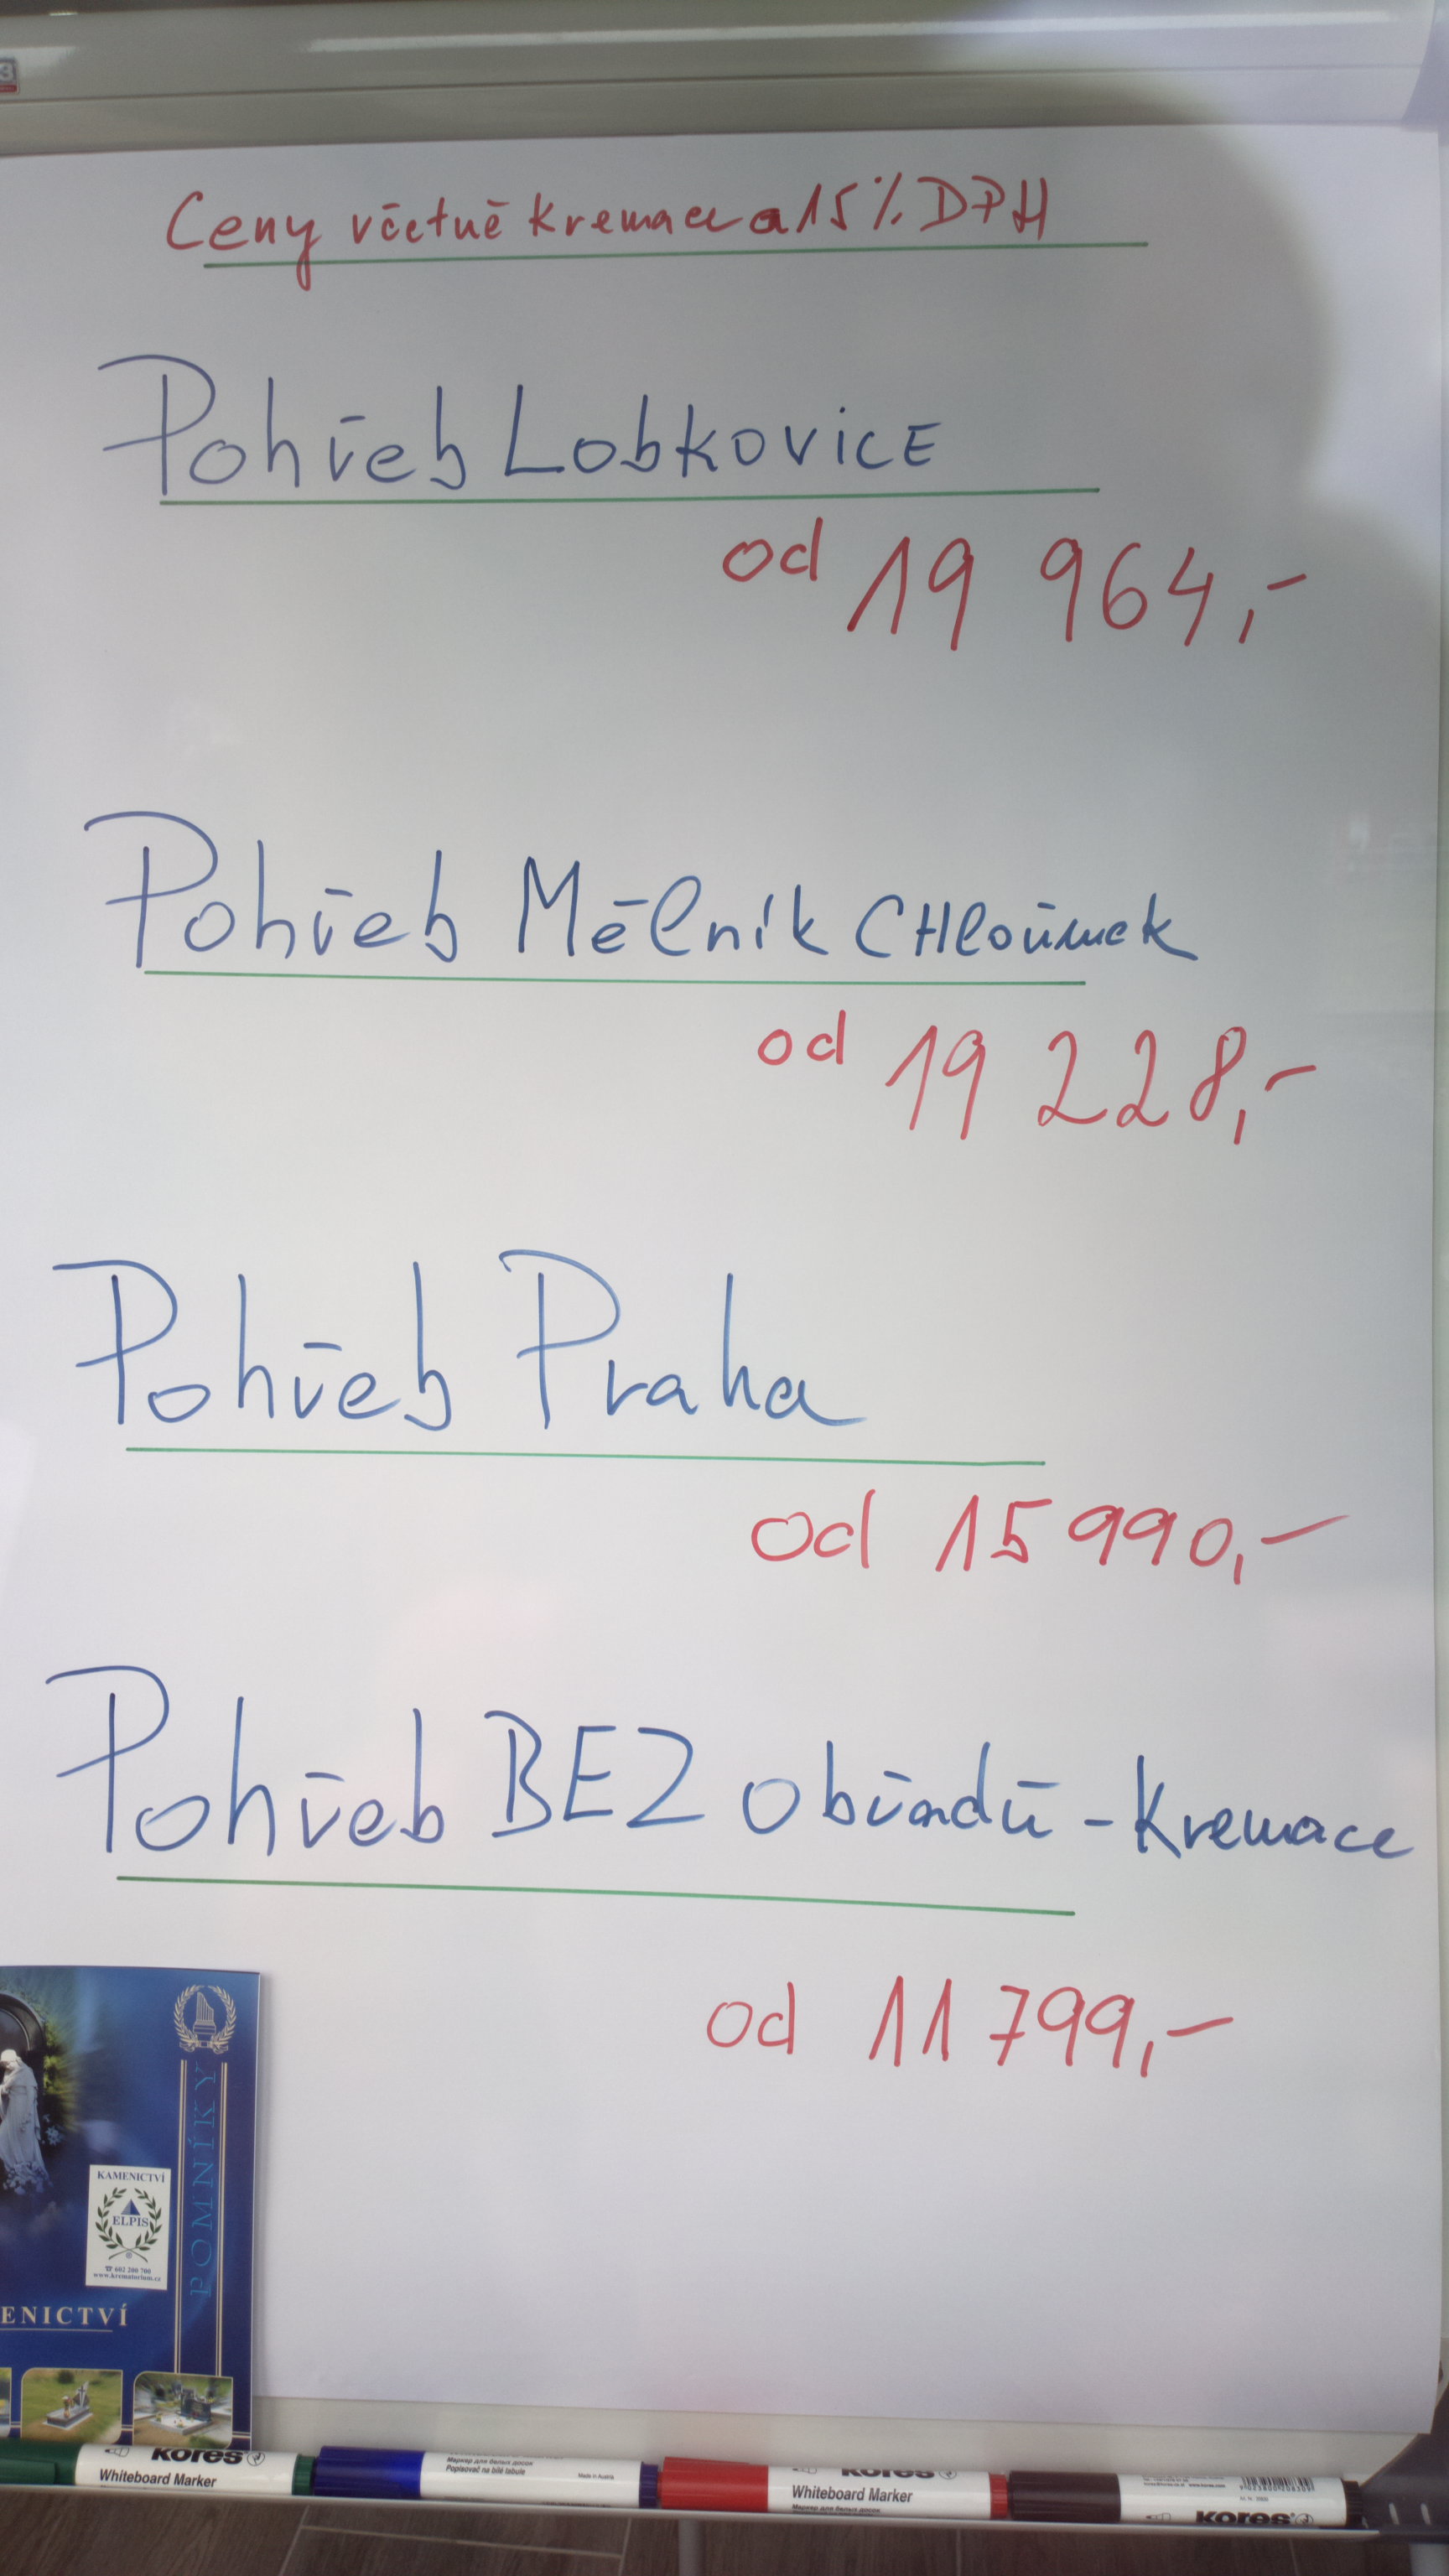 Ceny včetně kremace a 15% DPH
Pohřeb LobkovicE
od 19 964,-
Pohřeb Mělník CHloůmek
od 19 228,-
Pohřeb Praha
od 15 990,-
Pohřeb BEZ obřadů - Kremace
od 11 799,-
POMNÍKY
KAMENICTVÍ
ELPIS
☎ 602 200 700
www.krematorium.cz
ENICTVÍ
kores
Whiteboard Marker
Маркер для белых досок
Popisovač na bílé tabule
Made in Austria
kores
Whiteboard Marker
Маркер для белых досок
kores